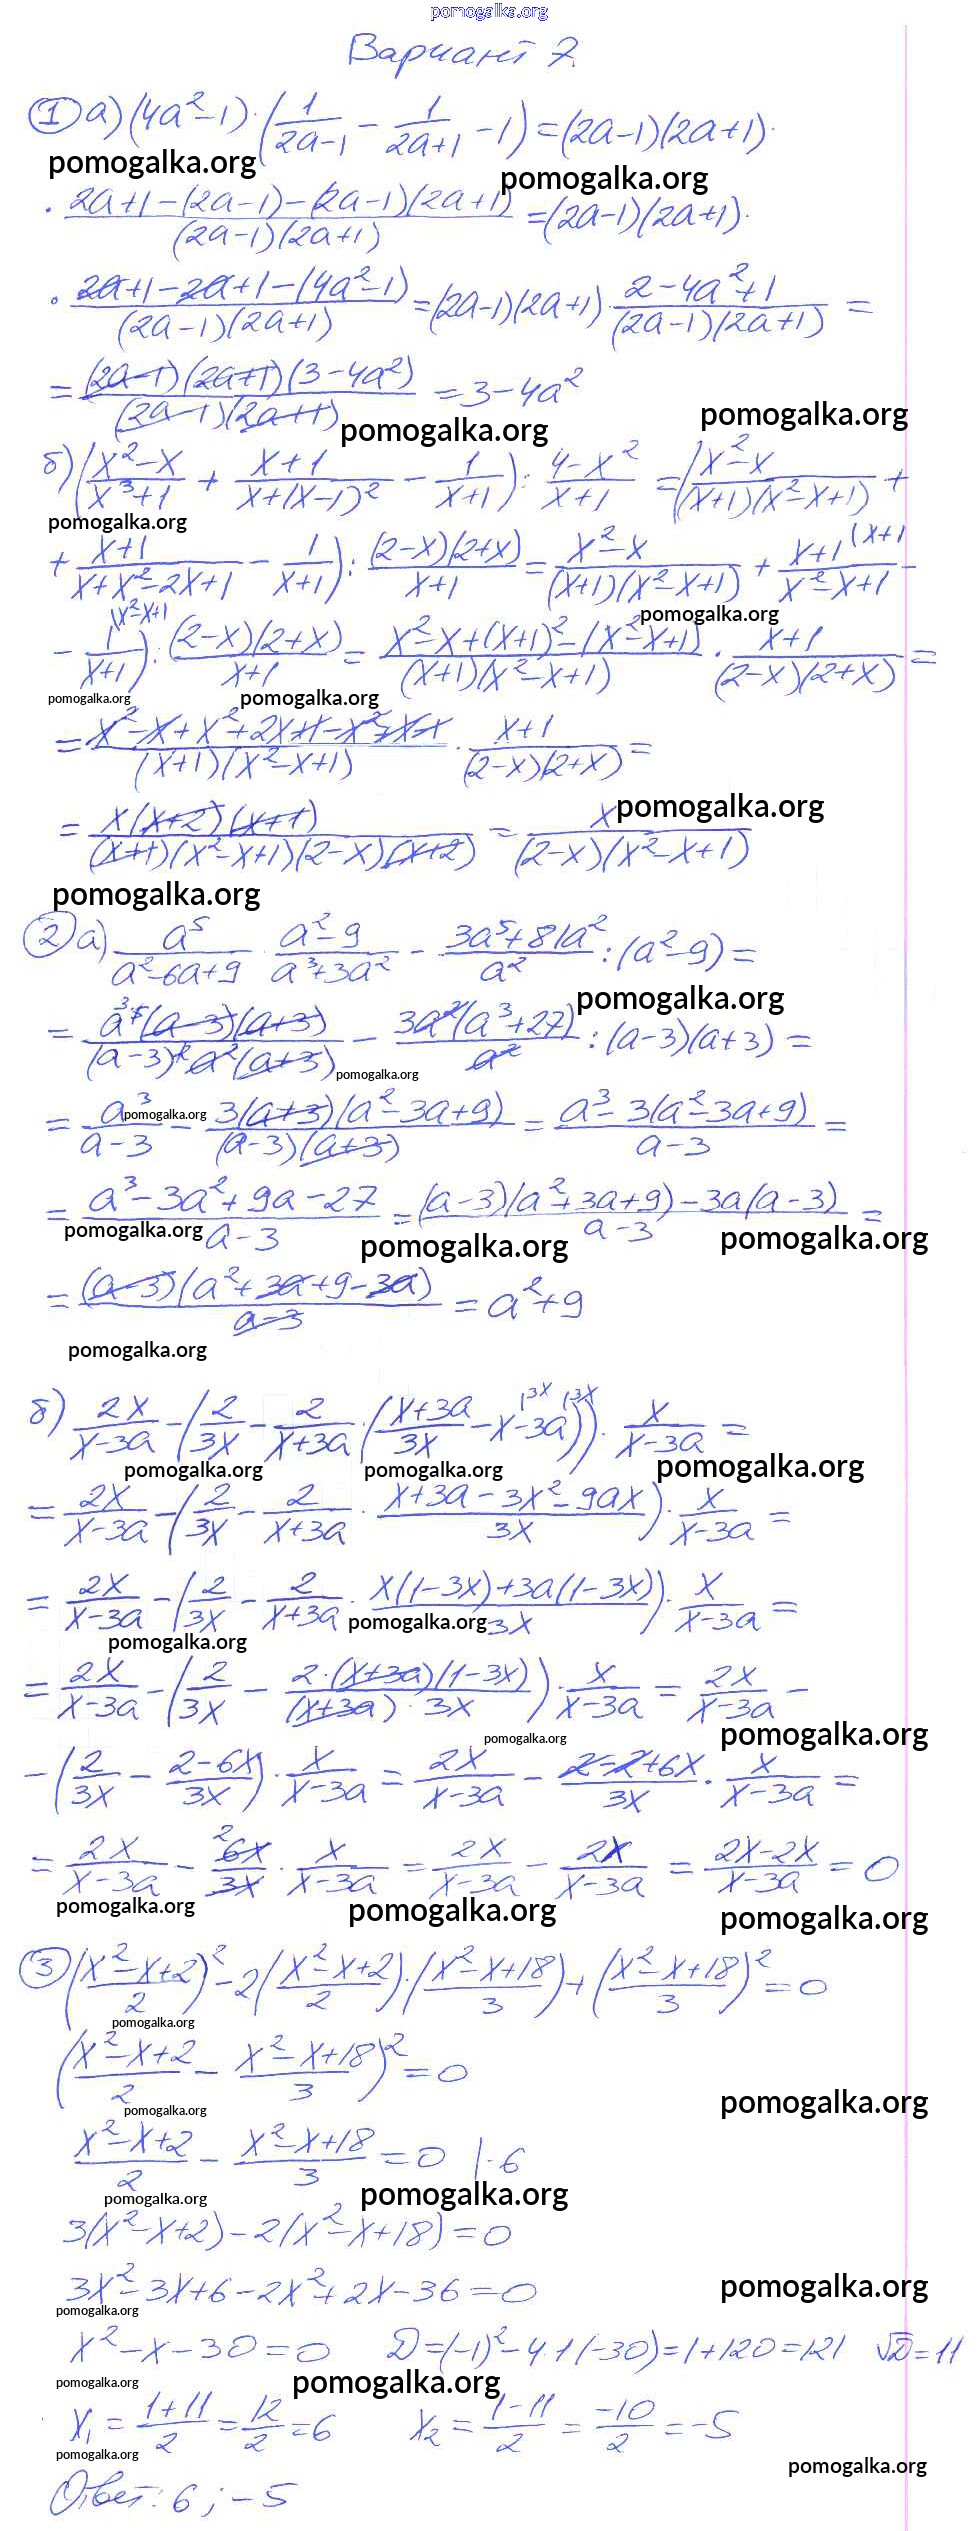 pomogalka.org
Вариант 7.
① а) (4a²-1)·(1/(2a-1) - 1/(2a+1) - 1) = (2a-1)(2a+1)·
pomogalka.org pomogalka.org
· (2a+1-(2a-1)-(2a-1)(2a+1))/((2a-1)(2a+1)) = (2a-1)(2a+1)·
· (2a+1-2a+1-(4a²-1))/((2a-1)(2a+1)) = (2a-1)(2a+1)·(2-4a²+1)/((2a-1)(2a+1)) =
= ((2a-1)(2a+1)(3-4a²))/((2a-1)(2a+1)) = 3-4a²
pomogalka.org pomogalka.org
б) ((x²-x)/(x³+1) + (x+1)/(x+(x-1)²) - 1/(x+1)) : (4-x²)/(x+1) = ((x²-x)/((x+1)(x²-x+1)) +
pomogalka.org
+ (x+1)/(x+x²-2x+1) - 1/(x+1)) : ((2-x)(2+x))/(x+1) = (x²-x)/((x+1)(x²-x+1)) + (x+1)/(x²-x+1) (x+1 -
pomogalka.org
- 1/(x+1) (x²-x+1) : ((2-x)(2+x))/(x+1) = (x²-x+(x+1)²-(x²-x+1))/((x+1)(x²-x+1)) · (x+1)/((2-x)(2+x)) =
pomogalka.org pomogalka.org
= (x²-x+x²+2x+1-x²+x-1)/((x+1)(x²-x+1)) · (x+1)/((2-x)(2+x)) =
= (x(x+2)(x+1))/((x+1)(x²-x+1)(2-x)(x+2)) = x/((2-x)(x²-x+1))
pomogalka.org
pomogalka.org
② а) a⁵/(a²-6a+9) · (a²-9)/(a³+3a²) - (3a⁵+81a²)/a² : (a²-9) =
pomogalka.org
= (a⁵ ³(a-3)(a+3))/((a-3)²a²(a+3)) - (3a²(a³+27))/a² : (a-3)(a+3) =
pomogalka.org
= a³/(a-3) - (3(a+3)(a²-3a+9))/((a-3)(a+3)) = (a³-3(a²-3a+9))/(a-3) =
pomogalka.org
= (a³-3a²+9a-27)/(a-3) = ((a-3)(a²+3a+9)-3a(a-3))/(a-3) =
pomogalka.org pomogalka.org pomogalka.org
= ((a-3)(a²+3a+9-3a))/(a-3) = a²+9
pomogalka.org
б) 2x/(x-3a) - (2/3x - 2/(x+3a) · ((x+3a)/3x - x (3x -3a (3x)) · x/(x-3a) =
pomogalka.org pomogalka.org pomogalka.org
= 2x/(x-3a) - (2/3x - 2/(x+3a) · (x+3a-3x²-9ax)/3x) · x/(x-3a) =
= 2x/(x-3a) - (2/3x - 2/(x+3a) · (x(1-3x)+3a(1-3x))/3x) · x/(x-3a) =
pomogalka.org
pomogalka.org
= 2x/(x-3a) - (2/3x - (2·(x+3a)(1-3x))/((x+3a)·3x)) · x/(x-3a) = 2x/(x-3a) -
pomogalka.org pomogalka.org
- (2/3x - (2-6x)/3x) · x/(x-3a) = 2x/(x-3a) - (2-2+6x)/3x · x/(x-3a) =
= 2x/(x-3a) - 6x ²/3x · x/(x-3a) = 2x/(x-3a) - 2x/(x-3a) = (2x-2x)/(x-3a) = 0
pomogalka.org pomogalka.org pomogalka.org
③ ((x²-x+2)/2)² - 2((x²-x+2)/2)·((x²-x+18)/3) + ((x²-x+18)/3)² = 0
pomogalka.org
((x²-x+2)/2 - (x²-x+18)/3)² = 0
pomogalka.org pomogalka.org
(x²-x+2)/2 - (x²-x+18)/3 = 0 |·6
pomogalka.org pomogalka.org
3(x²-x+2)-2(x²-x+18)=0
3x²-3x+6-2x²+2x-36=0
pomogalka.org
pomogalka.org
x²-x-30=0 D=(-1)²-4·1(-30)=1+120=121 √D=11
pomogalka.org pomogalka.org
x₁=(1+11)/2=12/2=6 x₂=(1-11)/2=-10/2=-5
pomogalka.org pomogalka.org
Ответ: 6; -5